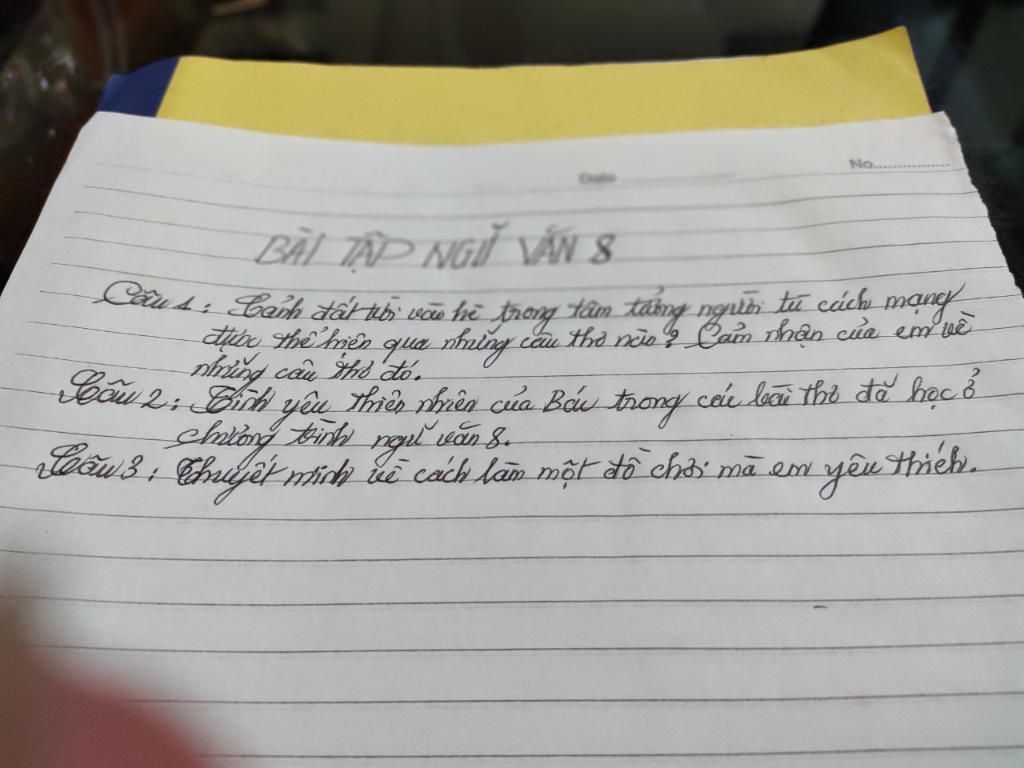 Date
No.
BÀI TẬP NGỮ VĂN 8
Câu 1: Cảnh đất trời vào hè trong tâm tưởng người tù cách mạng
được thể hiện qua những câu thơ nào? Cảm nhận của em về
những câu thơ đó.
Câu 2: Tình yêu thiên nhiên của Bác trong các bài thơ đã học ở
chương trình ngữ văn 8.
Câu 3: Thuyết minh về cách làm một đồ chơi mà em yêu thích.